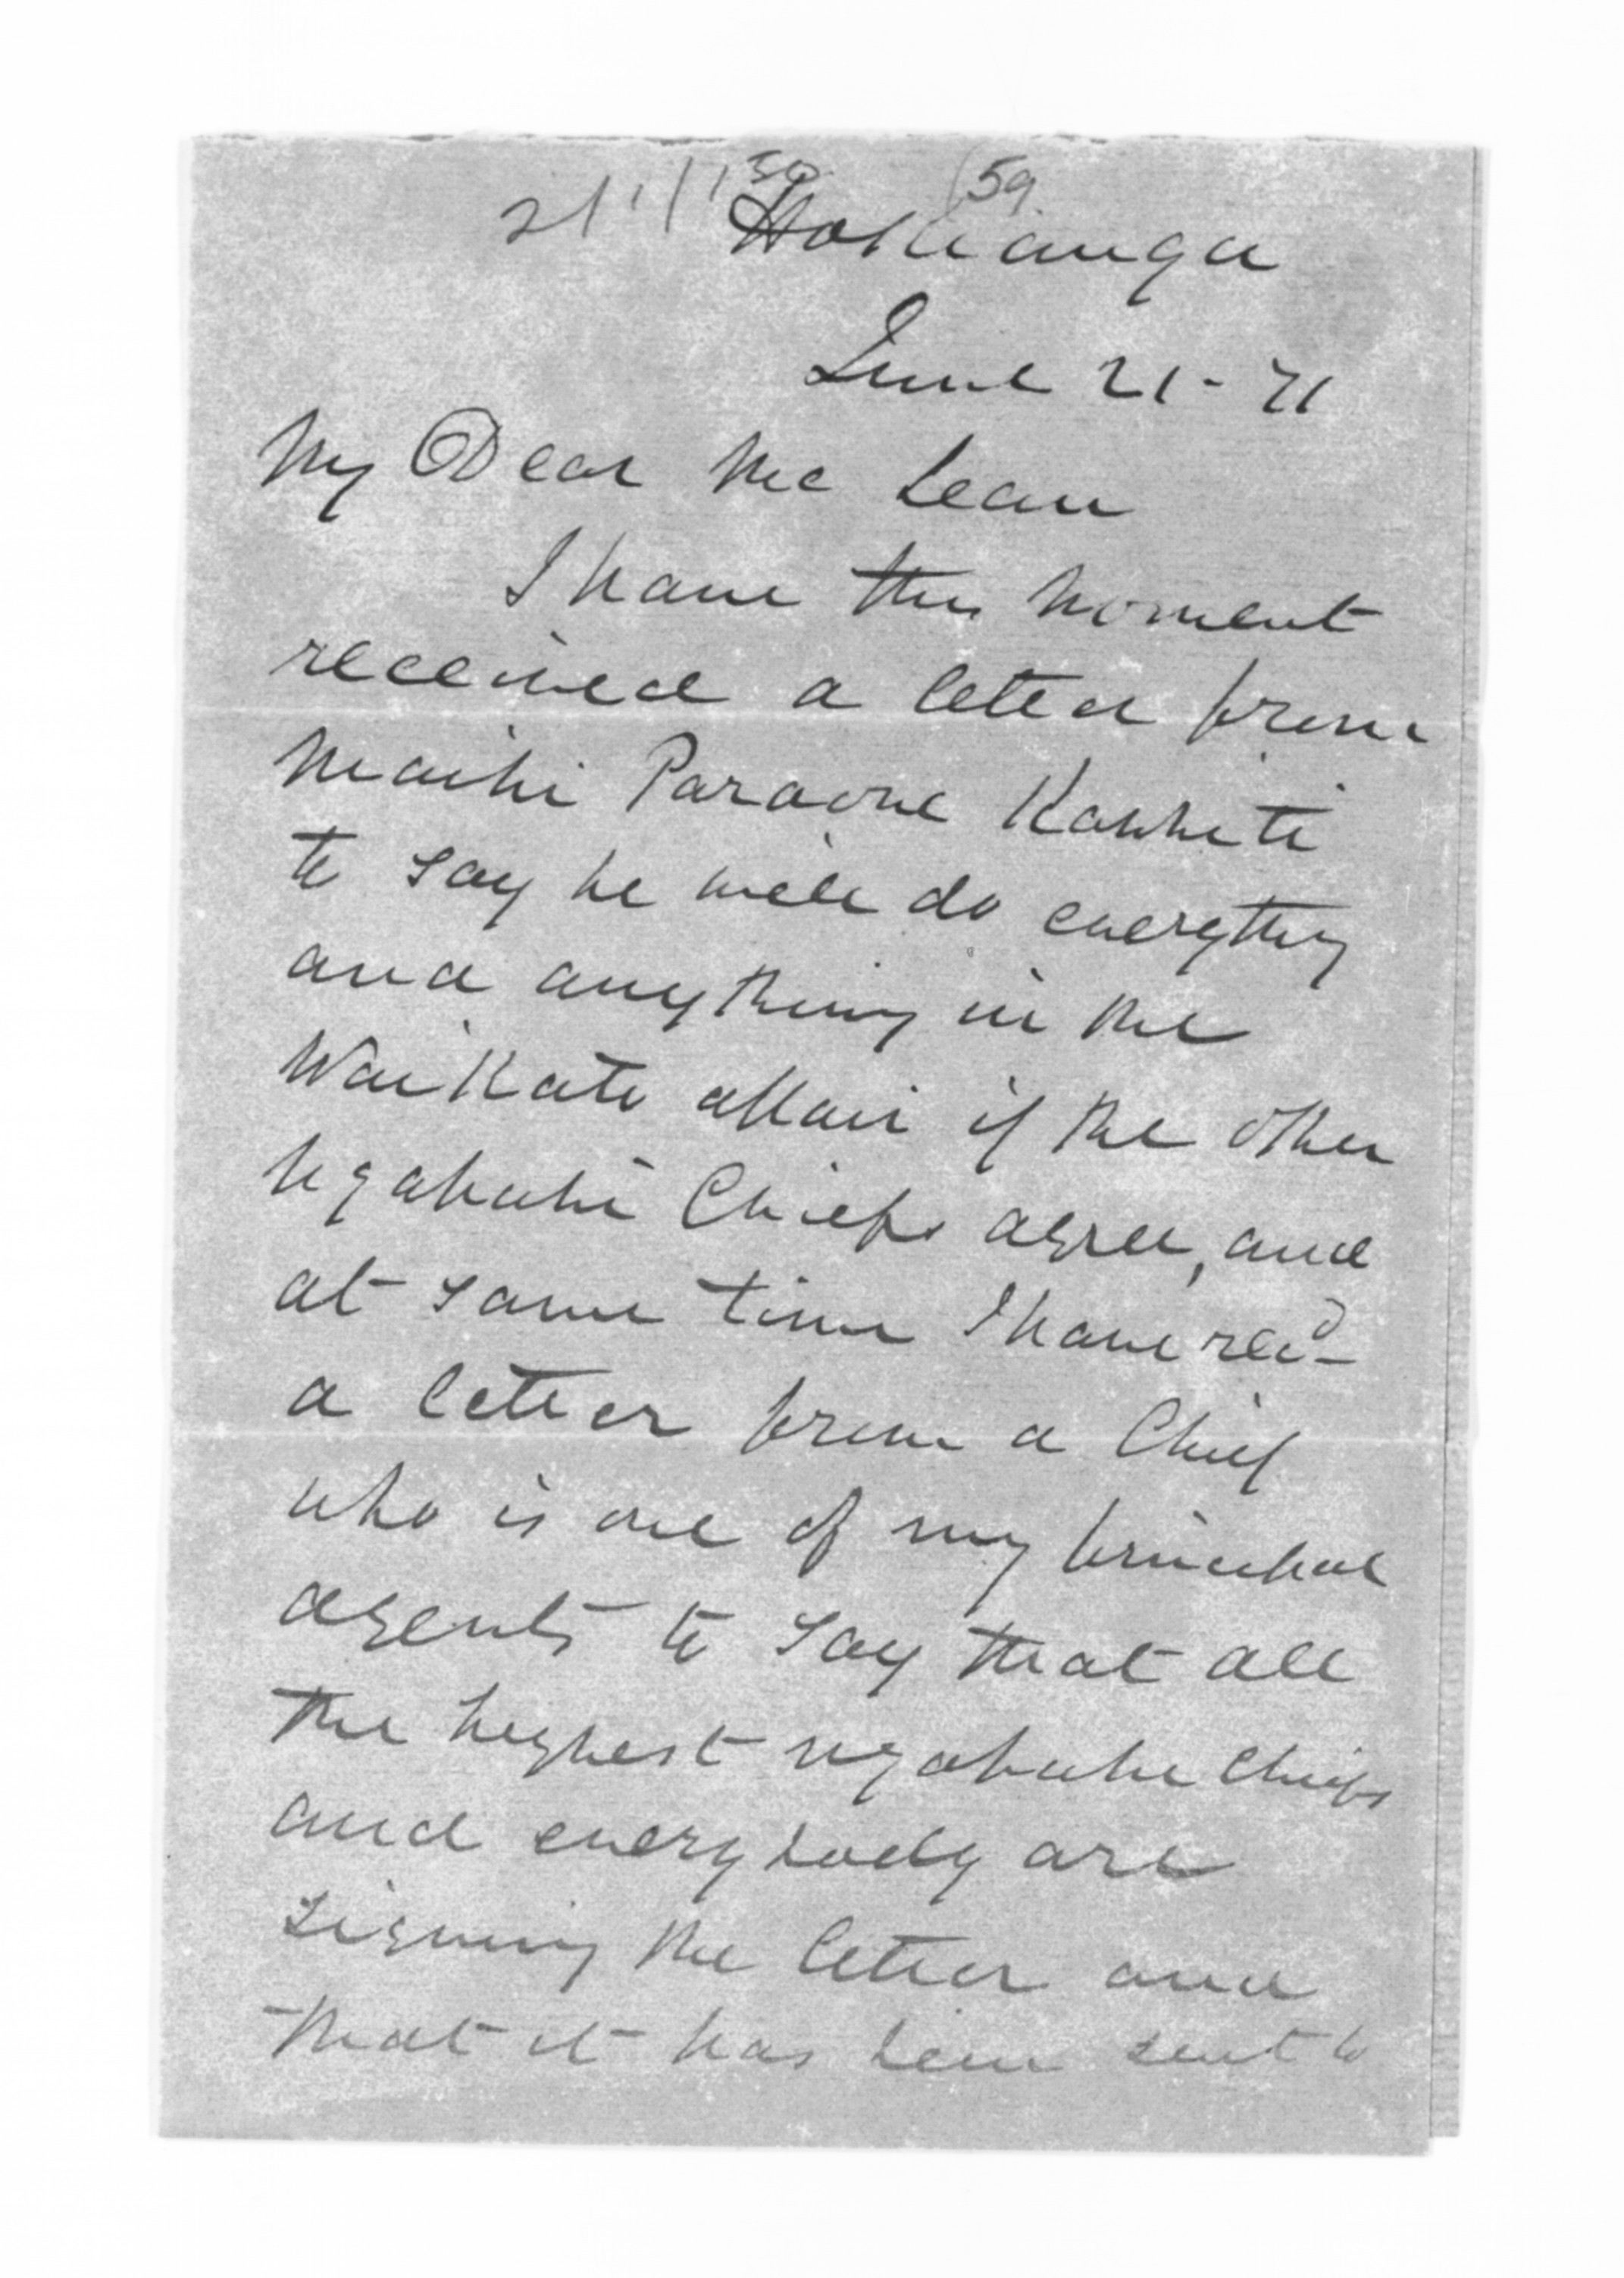 59
Hokianga
June 21 - 71
My Dear McLean
I have this moment
received a letter from
Maihi Paraone Kawhiti
to say he will do everything
and anything in the
Waikato affair if the other
Ngapuhi Chiefs agree, and
at same time I have recd
a letter from a Chief
who is one of my principal
agents to say that all
the highest ngapuhi Chiefs
and everybody are
signing the letter and
that it has been sent to